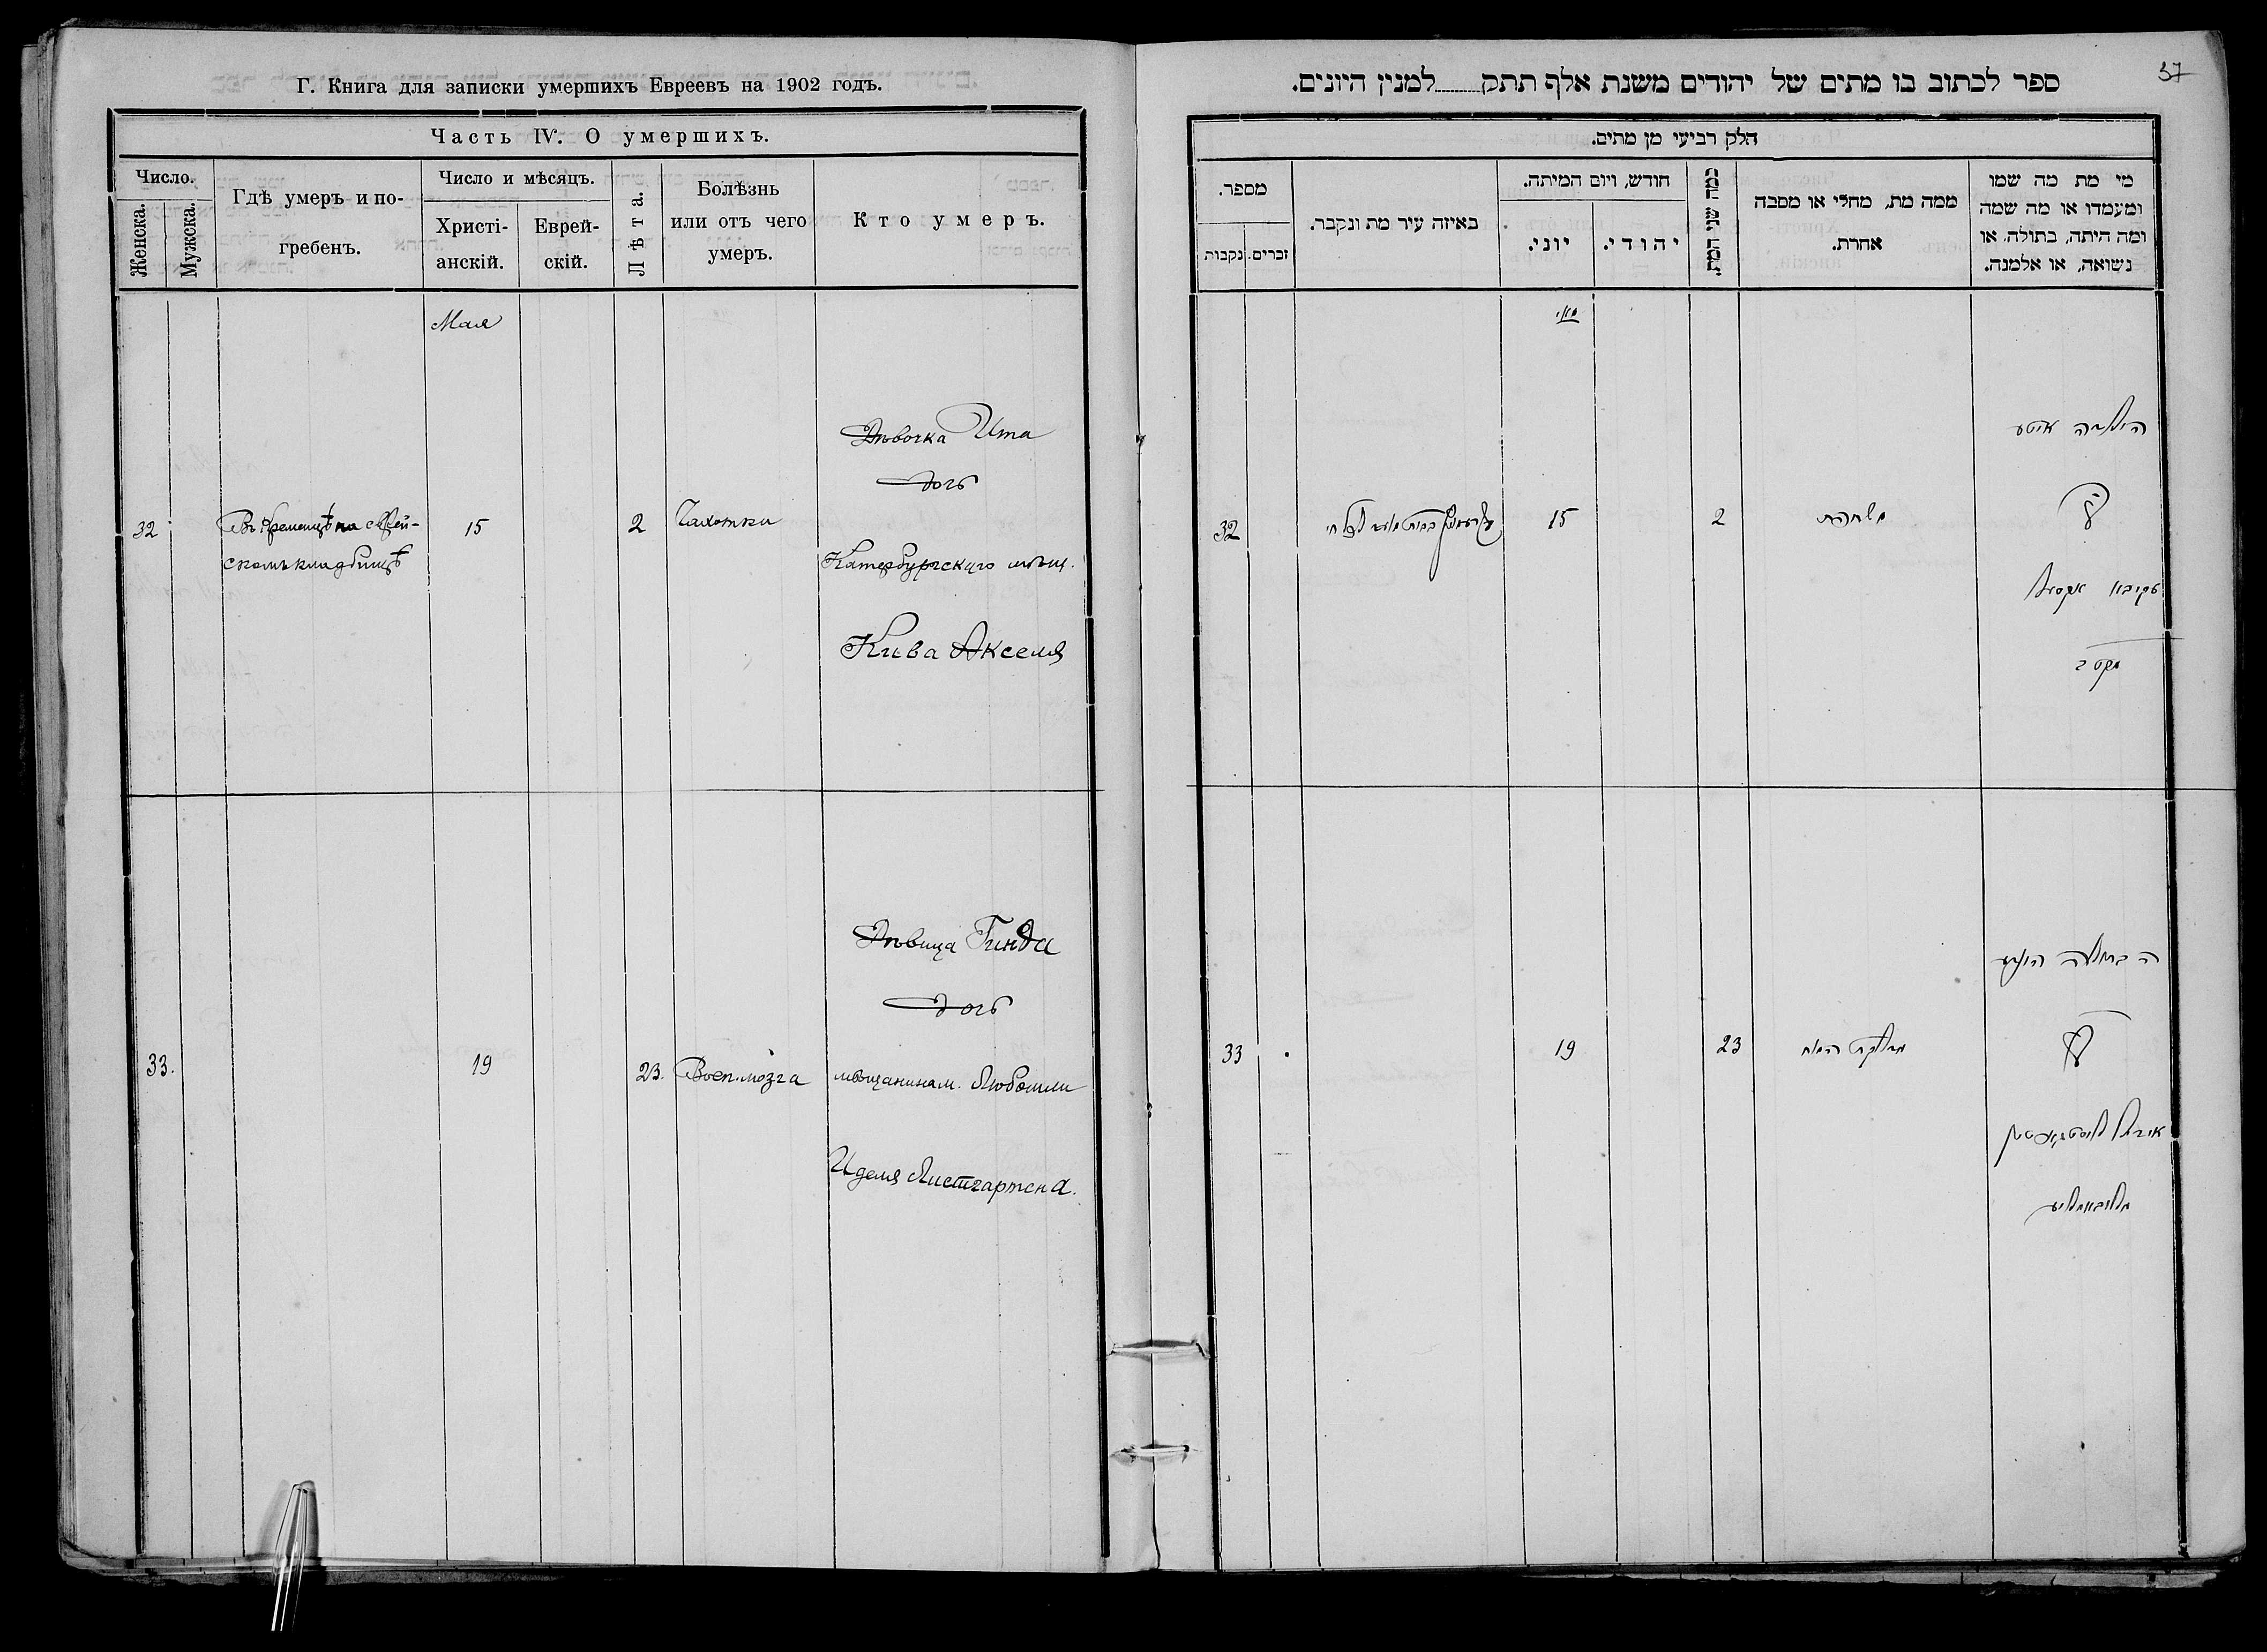 Г. Книга для записки умершихъ Евреевъ на 1902 годъ.
Часть IV. О умершихъ.
Число.
Женска.
Мужска.
Гдѣ умеръ и по-
гребенъ.
Число и мѣсяцъ.
Христі-
анскій.
Еврей-
скій.
Лѣта.
Болѣзнь
или отъ чего
умеръ.
Кто умеръ.
Мая
32
Въ Кременцѣ на еврей-
скомъ кладбищѣ
15
2
Чахотки
Дѣвочка Ита
дочь
Катербургскаго мѣщ.
Кива Акселя
33.
19
23.
Восп. мозга
Дѣвица Гинда
дочь
мѣщанина м. Любомли
Иделя Листгартена.
37
ספר לכתוב בו מתים של יהודים משנת אלף תתק למנין היונים.
חלק רביעי מן מתים.
מספר.
נקבות
זכרים.
באיזה עיר מת ונקבר.
חודש, ויום המיתה.
יוני.
יהודי.
כמה שני המת
ממה מת, מחלי או מסבה
אחרת.
מי מת מה שמו
ומעמדו או מה שמה
ומה היתה, בתולה, או
נשואה, או אלמנה.
מאי
32
15
2
משחפת
הילדה איטע
עקיבא אקסעל
33
19
23
מדלקת המוח
ה בתולה הינדע